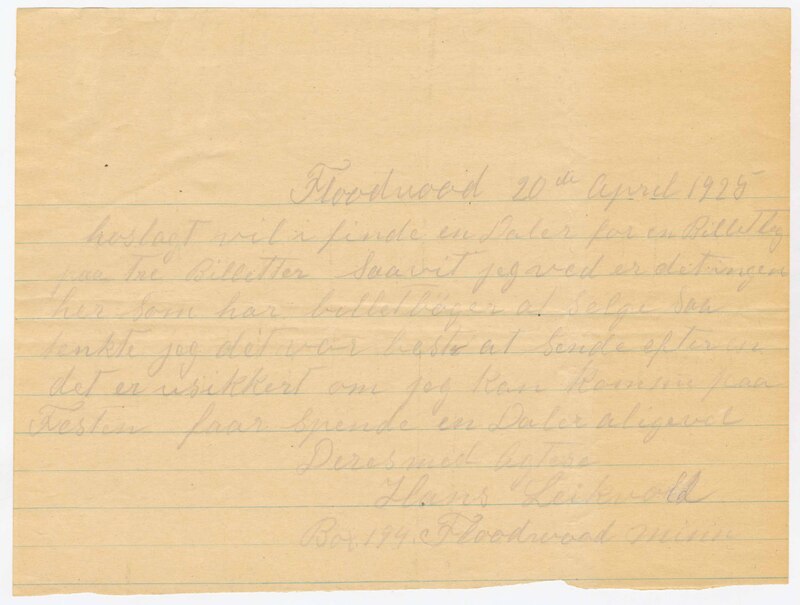 Floodwood 20de April 1925
hoslagt vil i finde en Daler for en Billetbog
paa tre Billetter Saavit jeg ved er det ingen
her Som har billetbøger at Selge Saa
tenkte jeg det var best at Sende efter en
det er usikkert om jeg kan komme paa
Festen faar Spende en Daler aligevel
Deres med Agtese
Hans Leikvold
Box 194 Floodwood Minn